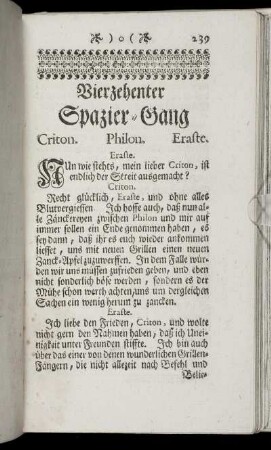 )o( 239
Vierzehenter
Spazier-Gang
Criton. Philon. Eraste.
Eraste.
NUn wie stehts, mein lieber Criton, ist
endlich der Streit ausgemacht?
Criton.
Recht glücklich, Eraste, und ohne alles
Blutvergiessen Ich hoffe auch, daß nun alle
Zänckereyen zwischen Philon und mir auf
immer sollen ein Ende genommen haben, es
sey dann, daß ihr es euch wieder ankommen
liesset, uns mit neuen Grillen einen neuen
Zanck-Apfel zuzuwerffen. In dem Falle würden
wir uns müssen zufrieden geben, und eben
nicht sonderlich böse werden, sondern es der
Mühe schon werth achten, uns um dergleichen
Sachen ein wenig herum zu zancken.
Eraste.
Ich liebe den Frieden, Criton, und wolte
nicht gern den Nahmen haben, daß ich Uneinigkeit
unter Freunden stiffte. Ich bin auch
über das einer von denen wunderlichen Grillen-
Fängern, die nicht allezeit nach Befehl und
Belie-